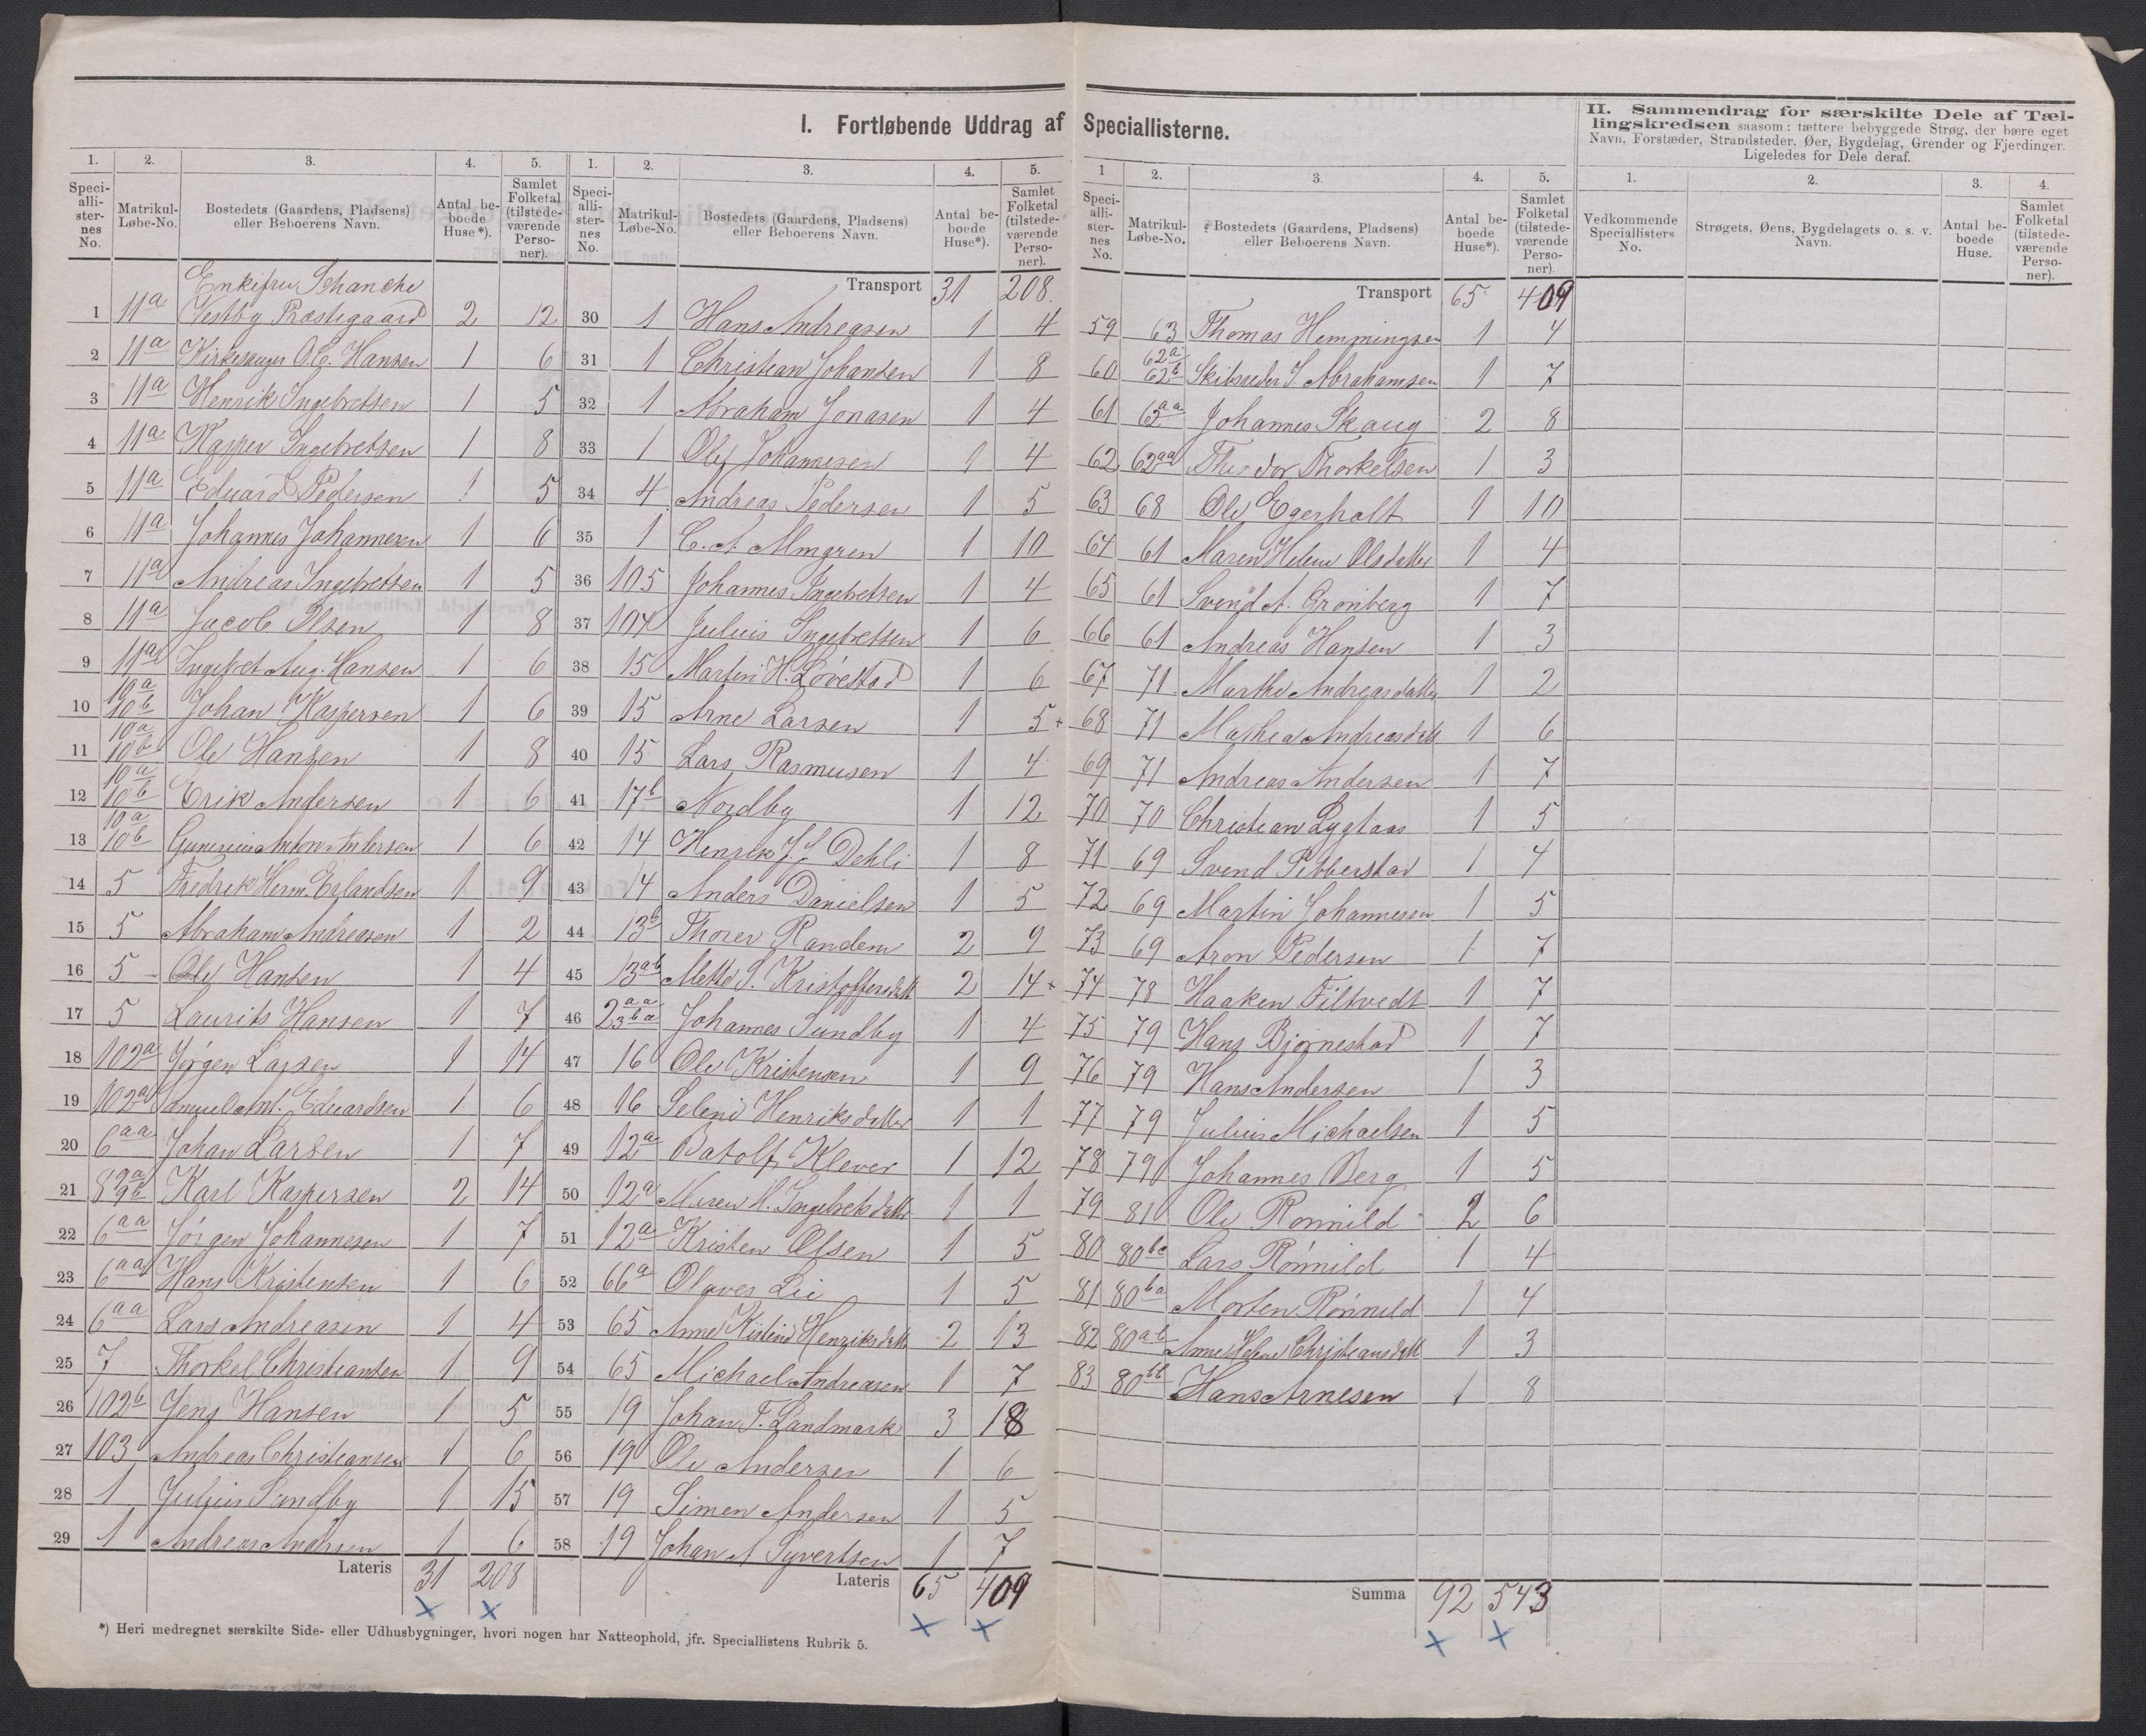 I. Fortløbende Uddrag af Speciallisterne.
1. 2. 3. 4. 5.
Speci-alli-ster-nes No. Matrikul-Løbe-No. Bostedets (Gaardens, Pladsens) eller Beboerens Navn. Antal be-boede Huse*). Samlet Folketal (tilstede-værende Perso-ner).
Enkefru Schanche
1 11a Vestby Præstegaard 2 12
2 11a Kirkesanger O. C. Hansen 1 6
3 11a Henrik Ingebretsen 1 5
4 11a Kasper Ingebretsen 1 8
5 11a Eduard Pedersen 1 5
6 11a Johannes Johannesen 1 6
7 11a Andreas Ingebretsen 1 5
8 11a Jacob Olsen 1 8
9 11a Ingebret Aug. Hansen 1 6
10 10a 10b Johan Kaspersen 1 6
11 10a 10b Ole Hansen 1 8
12 10a 10b Erik Andersen 1 6
13 10a 10b Gunerius Anton Andersen 1 6
14 5 Fredrik Herm. Erlandsen 1 9
15 5 Abraham Andreasen 1 2
16 5 Ole Hansen 1 4
17 5 Laurits Hansen 1 7
18 102a Jørgen Larsen 1 14
19 102a Samuel Ant. Eduardsen 1 6
20 6aa Johan Larsen 1 7
21 8 9a 9b Karl Kaspersen 2 14
22 6aa Jørgen Johannesen 1 7
23 6aa Hans Kristensen 1 6
24 6aa Lars Andreasen 1 4
25 7 Thorkel Christiansen 1 9
26 102b Jens Hansen 1 5
27 103 Andreas Christiansen 1 6
28 1 Julius Sundby 1 15
29 1 Andreas Andersen 1 6
Lateris 31 208
*) Heri medregnet særskilte Side- eller Udhusbygninger, hvori nogen har Natteophold, jfr. Speciallistens Rubrik 5.
1. 2. 3. 4. 5.
Speci-alli-ster-nes No. Matrikul-Løbe-No. Bostedets (Gaardens, Pladsens) eller Beboerens Navn. Antal be-boede Huse*). Samlet Folketal (tilstede-værende Perso-ner).
Transport 31 208.
30 1 Hans Andreasen 1 4
31 1 Christian Johansen 1 8
32 1 Abraham Jonasen 1 4
33 1 Ole Johannesen 1 4
34 4 Andreas Pedersen 1 5
35 1 C. A. Almgren 1 10
36 105 Johannes Ingebretsen 1 4
37 104 Julius Ingebretsen 1 6
38 15 Martin H. Løvestad 1 6
39 15 Arne Larsen 1 5 +
40 15 Lars Rasmusen 1 4
41 17b Nordby 1 12
42 14 Henrik J. Dehli 1 8
43 14 Anders Danielsen 1 5
44 13b Thorer Randem 2 9
45 13ab Mette S. Kristoffersdatt 2 14 +
46 2aa 3ba Johannes Sundby 1 4
47 16 Ole Kristensen 1 9
48 16 Seleni Henriksdatter 1 1
49 12a Batolf Klever 1 12
50 12a Maren H. Ingebretsdatt 1 1
51 12a Kristen Olsen 1 5
52 66a Olaves Lie 1 5
53 65 Anne Kistine Henriksdatt 2 13
54 65 Michael Andreasen 1 7
55 19 Johan P. Landmark 3 18
56 19 Ole Andersen 1 6
57 19 Simen Andersen 1 5
58 19 Johan A Syvertsen 1 7
Lateris 65 409
1 2. 3. 4. 5.
Speci-alli-ster-nes No. Matrikul-Løbe-No. Bostedets (Gaardens, Pladsens) eller Beboerens Navn. Antal be-boede Huse*). Samlet Folketal (tilstede-værende Perso-ner).
Transport 65 409
59 63 Thomas Hemmingsen 1 4
60 62a 62b Skibsreder S. Abrahamsen 1 7
61 62aa Johannes Skaug 2 8
62 62aa Theodor Thorkelsen 1 3
63 68 Ole Egerholt 1 10
64 61 Maren Helene Olsdatter 1 4
65 61 Svend A. Grønberg 1 7
66 61 Andreas Hansen 1 3
67 71 Marthe Andreasdatter 1 2
68 71 Mathea Andreasdatt 1 6
69 71 Andreas Andersen 1 7
70 70 Christian Lygtaas 1 5
71 69 Svend Pibberstad 1 4
72 69 Martin Johannesen 1 5
73 69 Aron Pedersen 1 7
74 78 Haaken Filtvedt 1 7
75 79 Hans Bjørnestad 1 7
76 79 Hans Andersen 1 3
77 79 Julius Michaelsen 1 5
78 79 Johannes Berg 1 5
79 81 Ole Rønnild 2 6
80 80bc Lars Rønnild 1 4
81 80ba Morten Rønnild 1 4
82 80ab Anne Helene Christiansdatt 1 3
83 80bb Hans Arnesen 1 8
Summa 92 543
II. Sammendrag for særskilte Dele af Tæl-
lingskredsen saasom: tættere bebyggede Strøg, der bære eget
Navn, Forstæder, Strandsteder, Øer, Bygdelag, Grender og Fjerdinger.
Ligeledes for Dele deraf.
1. 2. 3. 4.
Vedkommende Speciallisters No. Strøgets, Øens, Bygdelagets o. s. v. Navn. Antal be-boede Huse. Samlet Folketal (tilstede-værende Perso-ner).